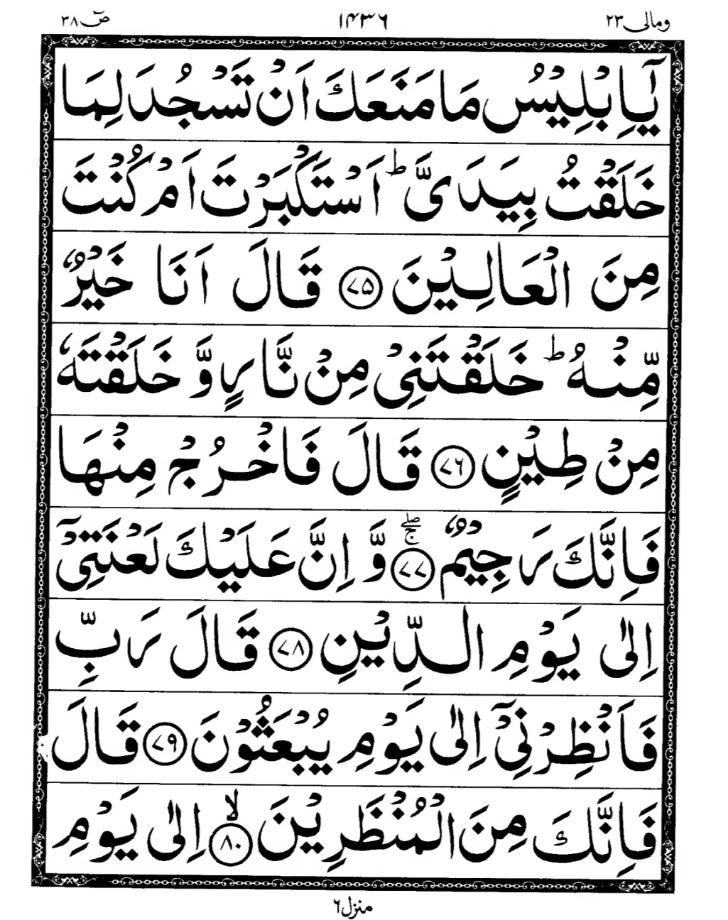 ومالی ٢٣ ١٤٣٦ صٓ ٣٨
يٰۤاِبْلِيْسُ مَا مَنَعَكَ اَنْ تَسْجُدَ لِمَا
خَلَقْتُ بِيَدَىَّ ؕ اَسْتَكْبَرْتَ اَمْ كُنْتَ
مِنَ الْعَالِيْنَ ﴿٧٥﴾ قَالَ اَنَا خَيْرٌ
مِّنْهُ ؕ خَلَقْتَنِىْ مِنْ نَّارٍ وَّ خَلَقْتَهٗ
مِنْ طِيْنٍ ﴿٧٦﴾ قَالَ فَاخْرُجْ مِنْهَا
فَاِنَّكَ رَجِيْمٌ ﴿٧٧﴾ ۖۚ وَّ اِنَّ عَلَيْكَ لَعْنَتِىْۤ
اِلٰى يَوْمِ الدِّيْنِ ﴿٧٨﴾ قَالَ رَبِّ
فَاَنْظِرْنِىْۤ اِلٰى يَوْمِ يُبْعَثُوْنَ ﴿٧٩﴾ قَالَ
فَاِنَّكَ مِنَ الْمُنْظَرِيْنَ ﴿٨٠﴾ ۙ اِلٰى يَوْمِ
منزل ٦